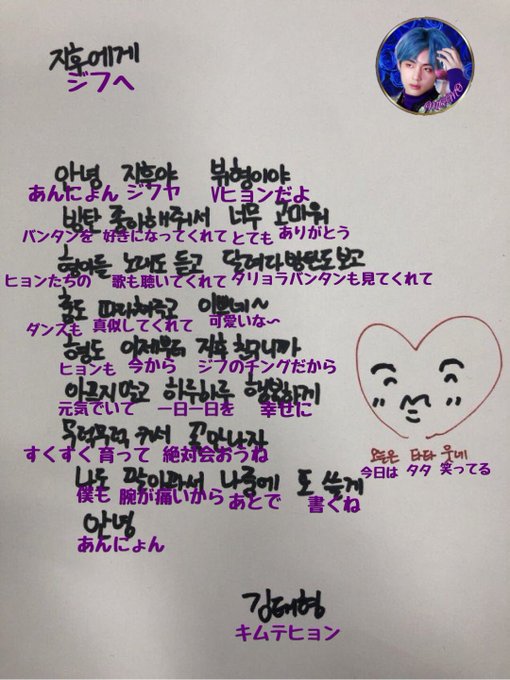 지후에게
ジフへ
안녕 지후야 뷔형이야
あんにょん ジフヤ Vヒョンだよ
방탄 좋아해줘서 너무 고마워
バンタンを 好きになってくれて とても ありがとう
형아들 노래도 듣고 달려라방탄도 보고
ヒョンたちの 歌も聴いてくれて タリョラバンタンも見てくれて
춤도 따라춰주고 이쁘네~
ダンスも 真似してくれて 可愛いな〜
형도 이제부터 지후 친구니까
ヒョンも 今から ジフのチングだから
아프지말고 하루하루 행복하게
元気でいて 一日一日を 幸せに
무럭무럭 커서 꼭 만나자
すくすく 育って 絶対会おうね
나도 팔이아파서 나중에 또 쓸게
僕も 腕が痛いから あとで 書くね
안녕
あんにょん
오늘은 타타 웃네
今日は タタ 笑ってる
김태형
キムテヒョン